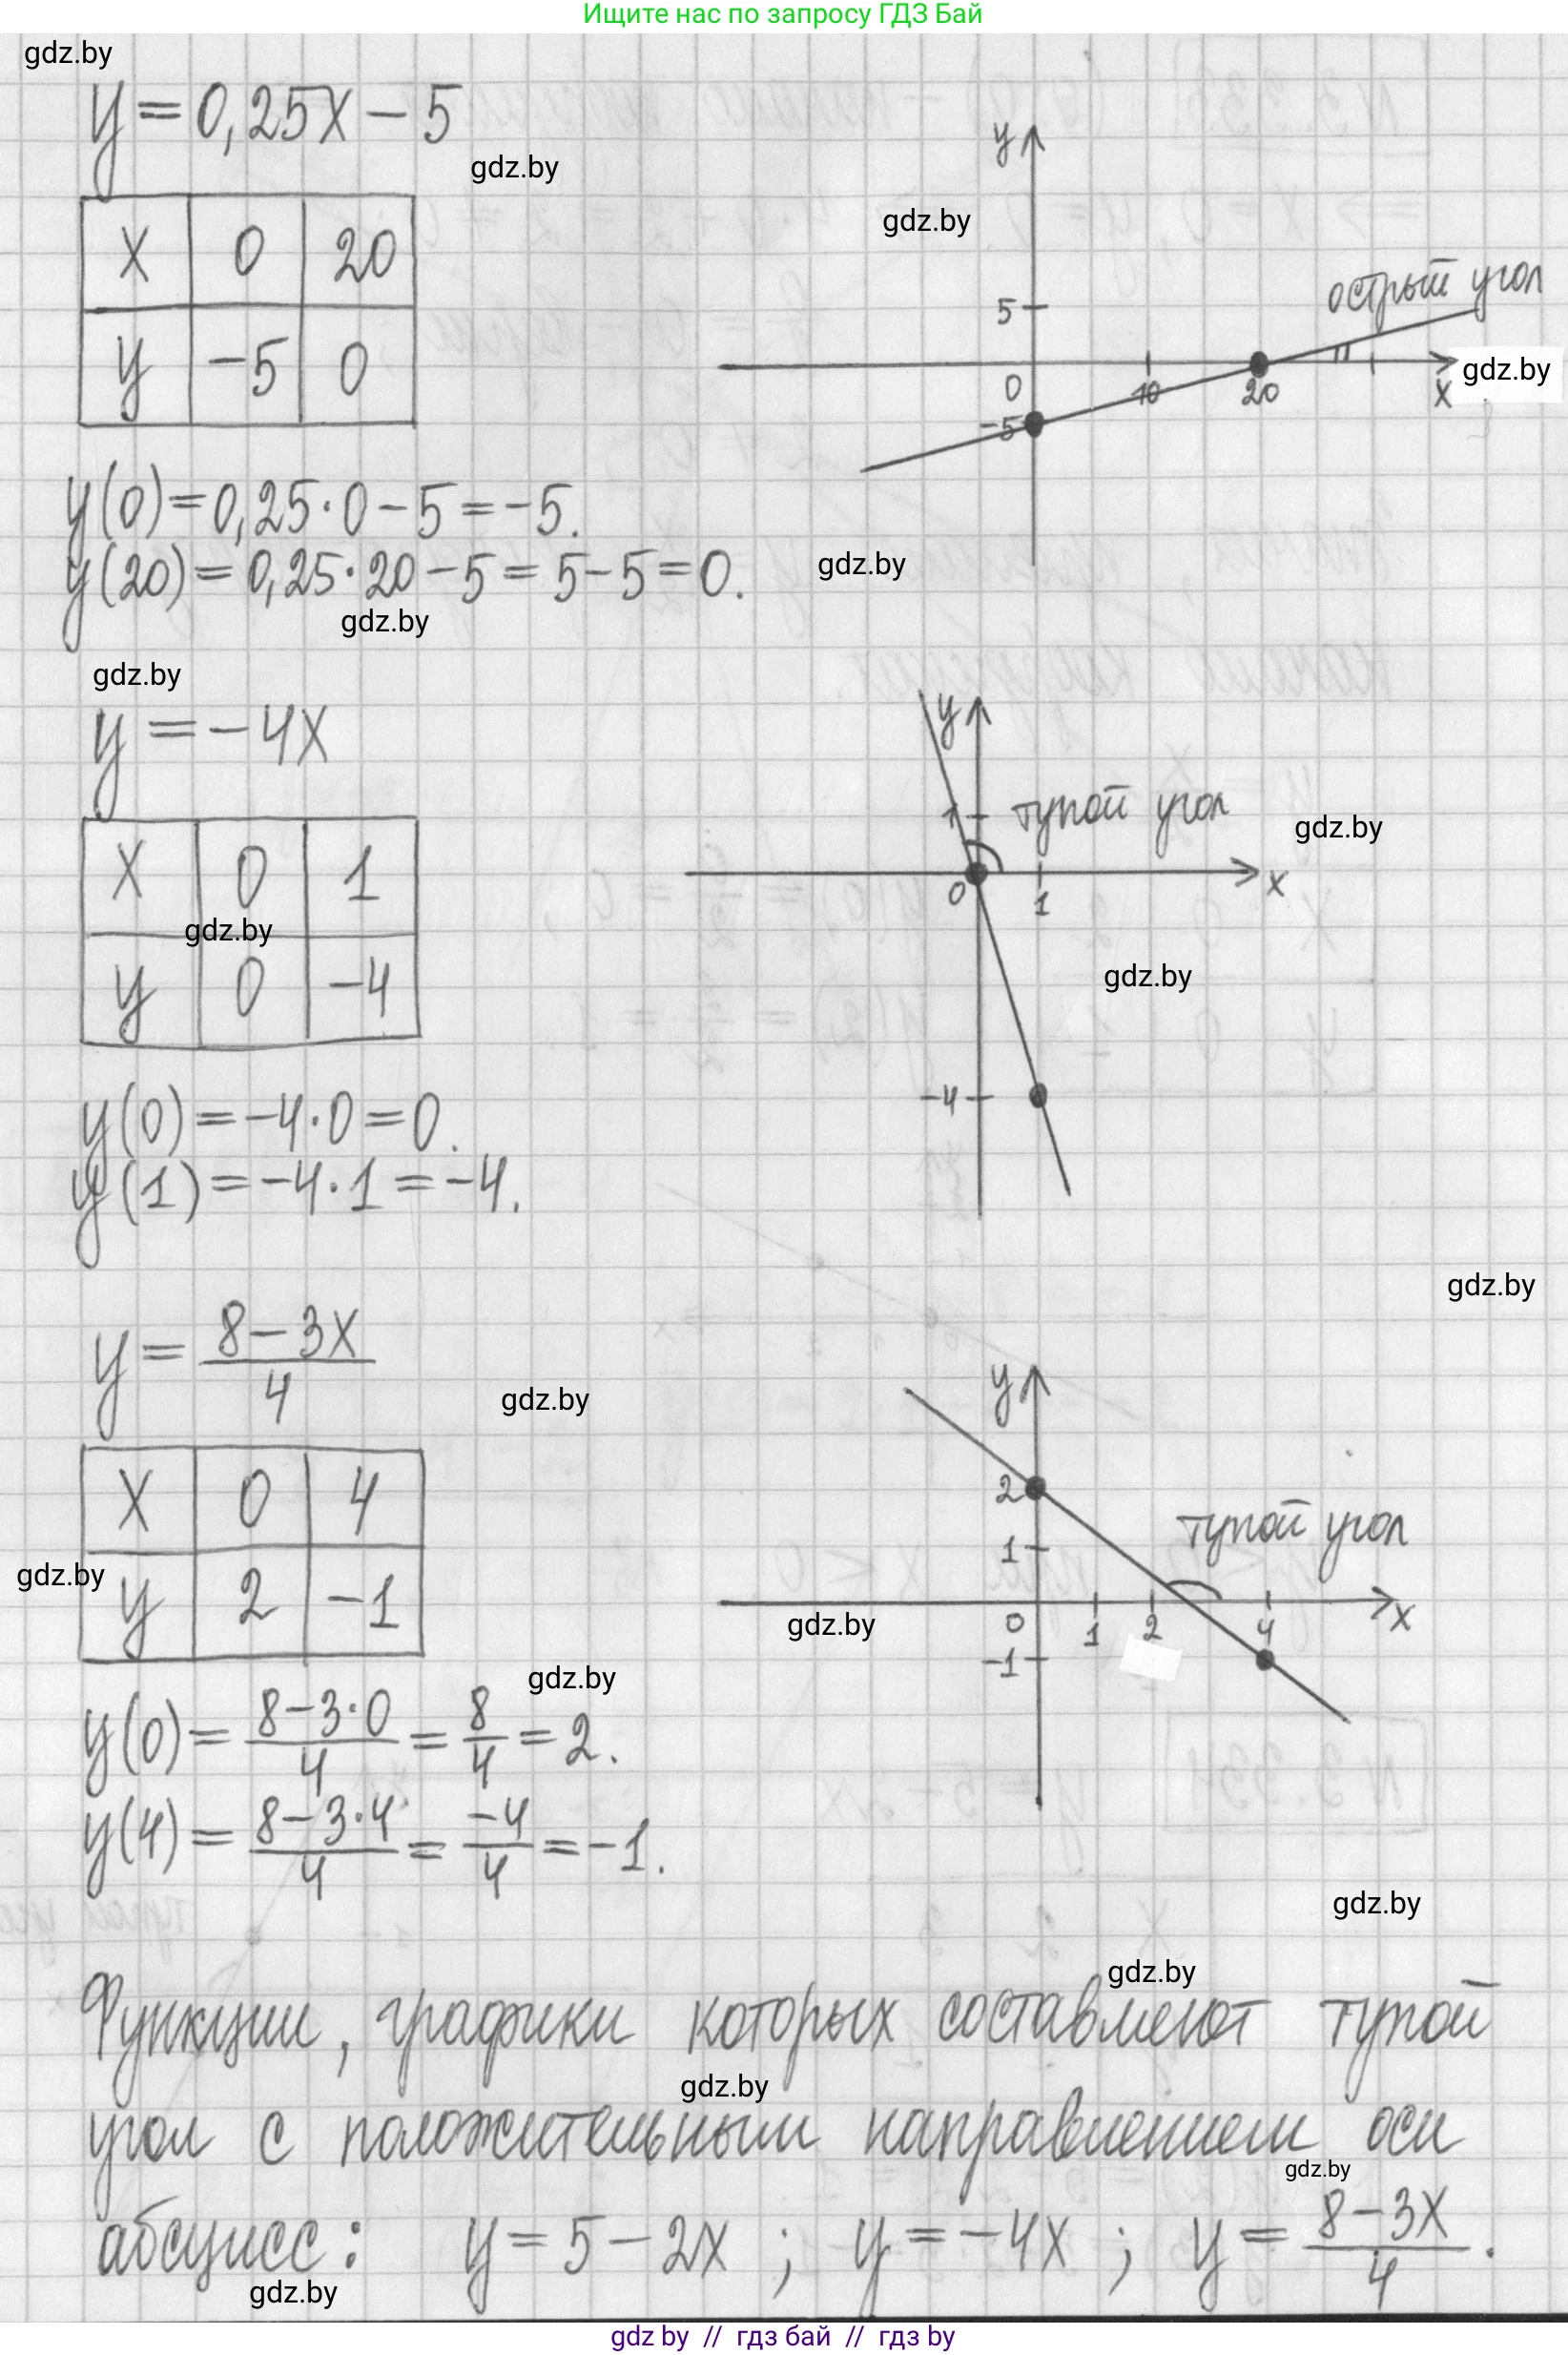 Ищите нас по запросу ГДЗ Бай
gdz.by
y = 0,25x − 5
gdz.by
x 0 20
y −5 0
gdz.by
y
5
острый угол
0 10 20 x
gdz.by
−5
y(0) = 0,25·0 − 5 = −5.
y(20) = 0,25·20 − 5 = 5 − 5 = 0.
gdz.by
gdz.by
gdz.by
y = −4x
x 0 1
y 0 −4
gdz.by
y
1 тупой угол
gdz.by
0 1 x
gdz.by
−4
y(0) = −4·0 = 0.
y(1) = −4·1 = −4.
gdz.by
y = (8 − 3x)/4
gdz.by
x 0 4
y 2 −1
gdz.by
y
2
тупой угол
1
0 1 2 4 x
gdz.by
−1
gdz.by
y(0) = (8 − 3·0)/4 = 8/4 = 2.
y(4) = (8 − 3·4)/4 = −4/4 = −1.
gdz.by
gdz.by
Функции, графики которых составляют тупой
gdz.by
угол с положительным направлением оси
gdz.by
абсцисс: y = 5 − 2x ; y = −4x ; y = (8 − 3x)/4.
gdz.by
gdz by // гдз бай // гдз by